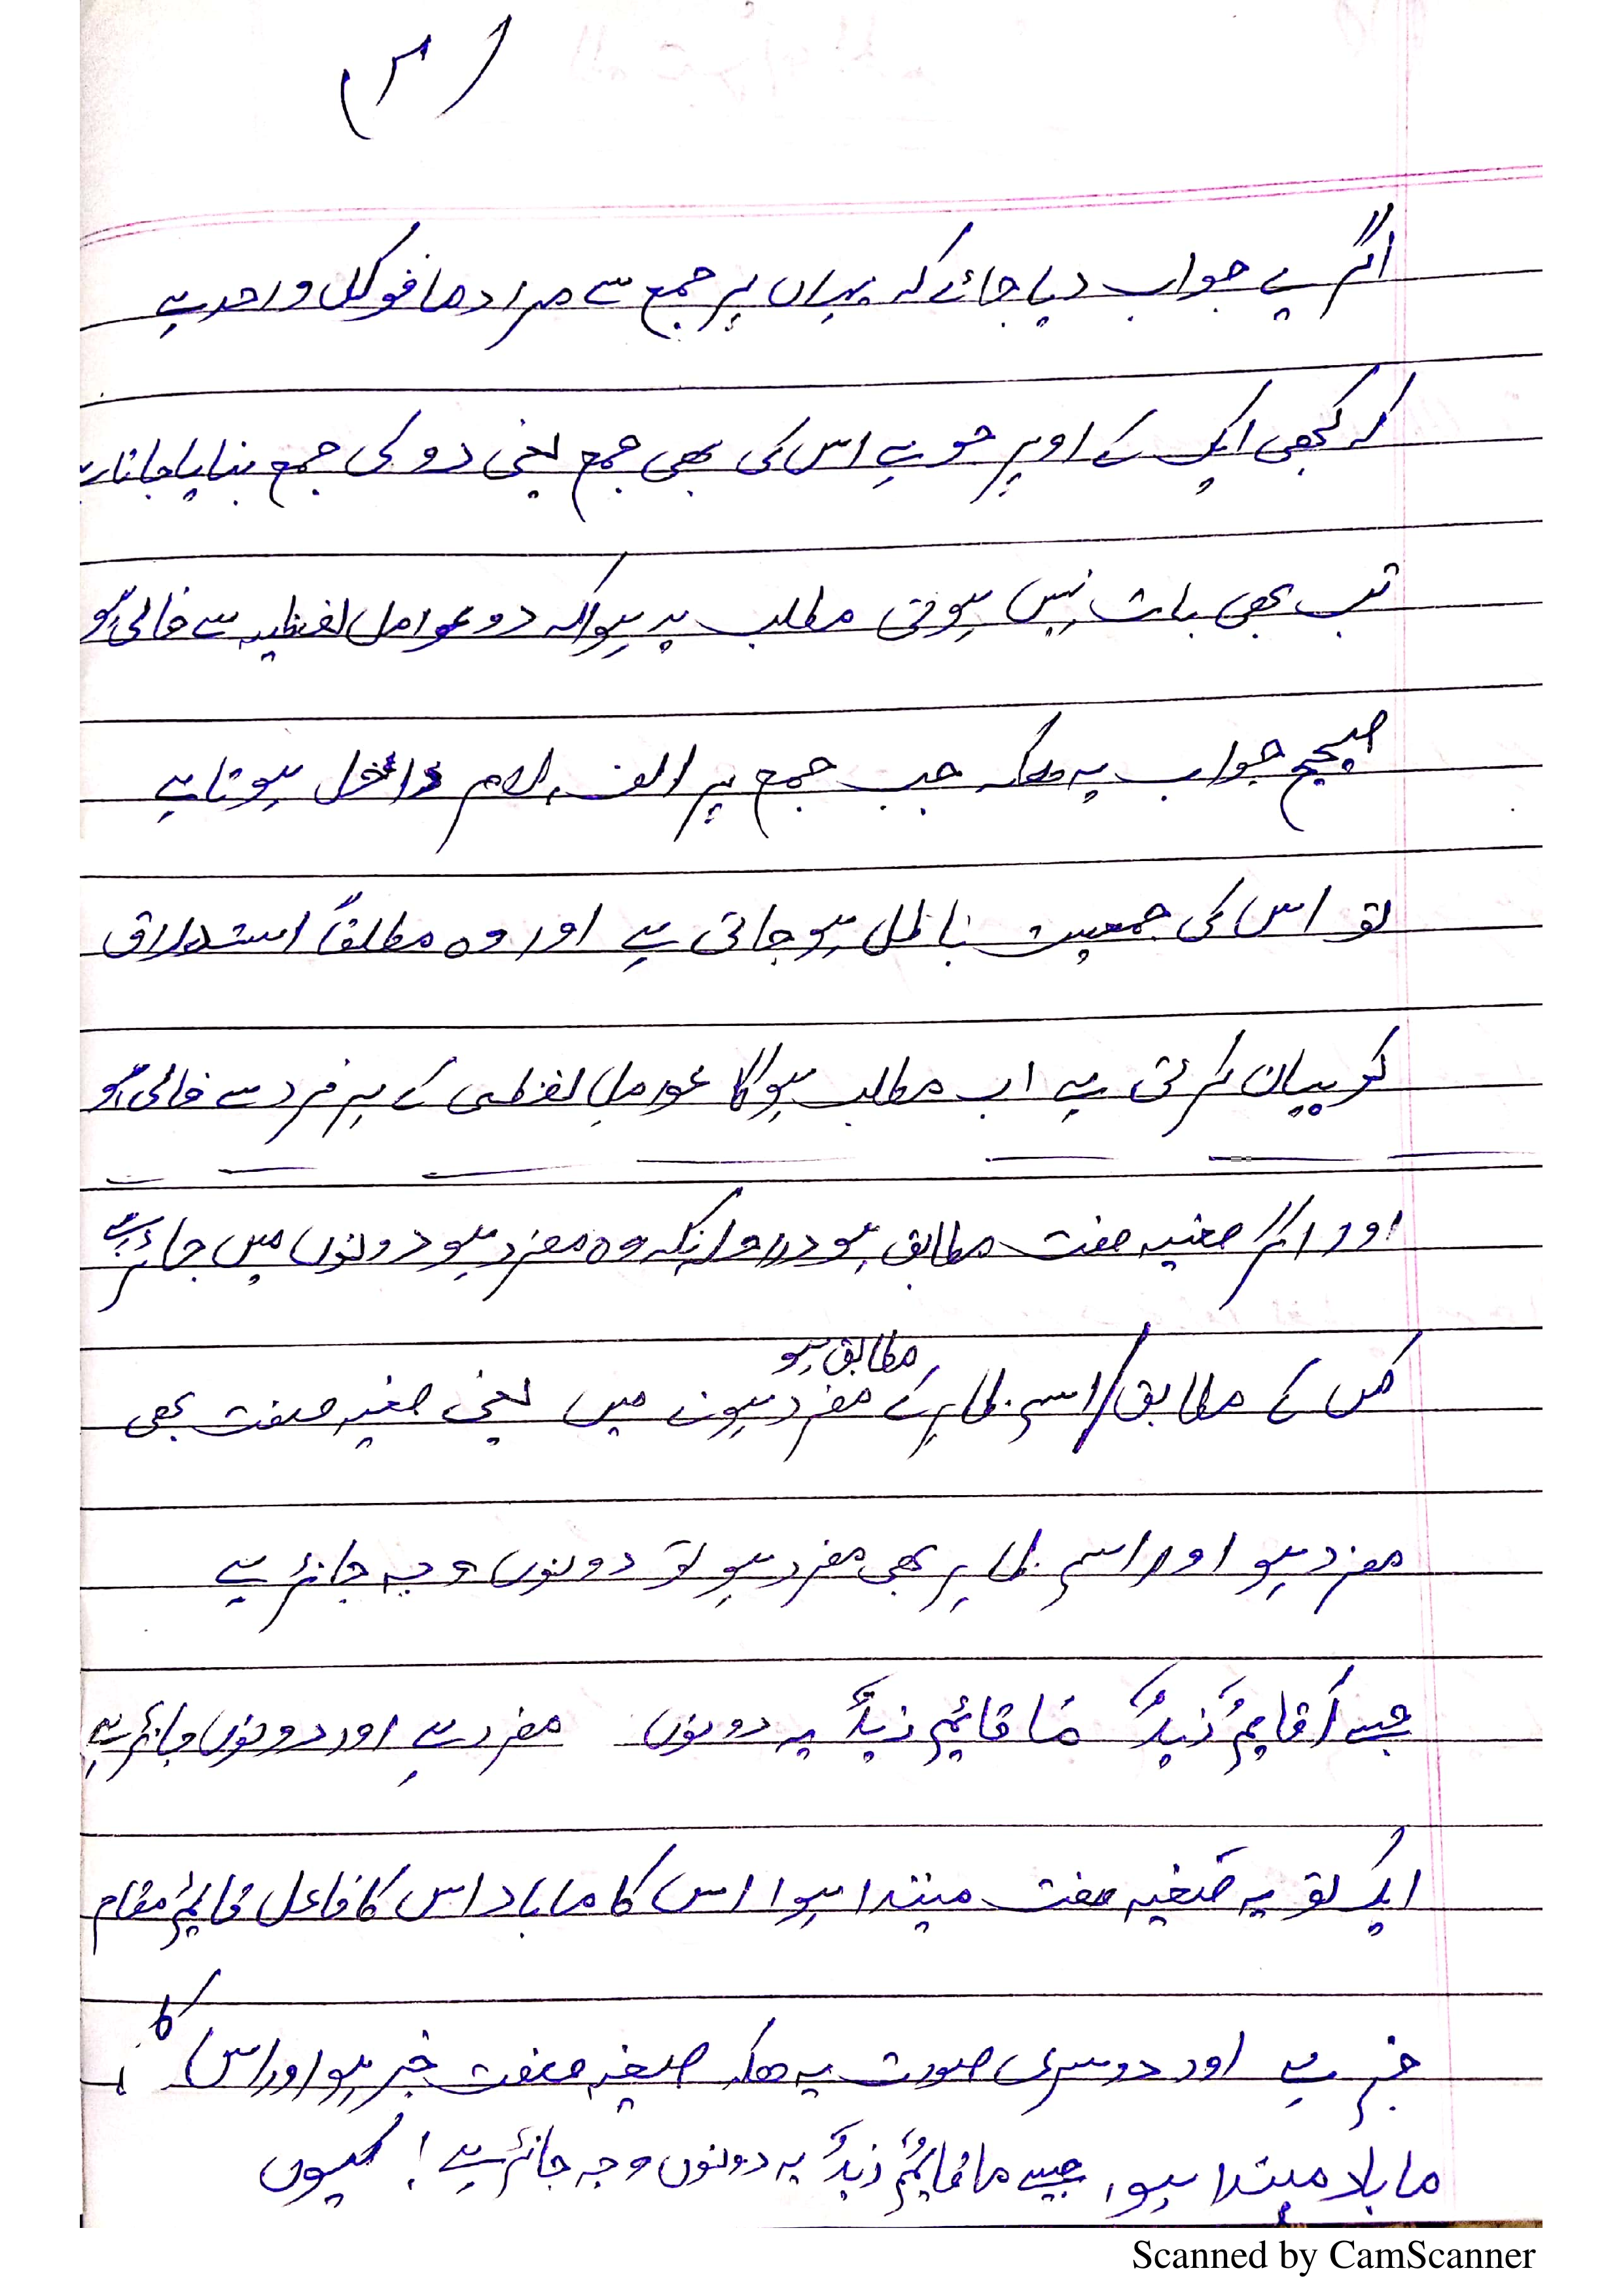 (۳)
اگر یہ جواب دیا جائے کہ یہاں پر جمع سے مراد ما فوکل واحد ہے
کہ کبھی ایک کے اوپر جو ہے اس کی بھی جمع یعنی دو کی جمع بنایا جاتا ہے
تب بھی بات نہیں ہوتی مطلب یہ ہوا کہ دو عوامل لفظیہ سے خالی ہو
صحیح جواب یہ ھیکہ جب جمع پر الف لام داخل ہوتا ہے
تو اس کی جمعیت باطل ہو جاتی ہے اور وہ مطلقاً استدراق
کو بیان کرتی ہے اب مطلب ہوگا عوامل لفظی کے ہر فرد سے خالی ہو
اور اگر صغیہ صفت مطابق ہو درانکہ وہ مفرد ہو دونوں میں جائز ہے
کس کے مطابق / اسم ظاہر کے مطابق ہو مفرد ہونے میں یعنی صغیہ صفت بھی
مفرد ہو اور اسم ظاہر بھی مفرد ہو تو دونوں وجہ جائز ہے
جیسے أَقَائِمٌ زَیْدٌ مَا قَائِمٌ زَیْدٌ یہ دونوں مفرد ہے اور دونوں جائز ہے
ایک تو یہ صغیہ صفت مبتدا ہوا اس کا ما باد اس کا فاعل قائم مقام
خبر ہے اور دوسری صورت یہ ھیکہ صیغہ صفت خبر ہو اور اس کا
ما باد مبتدا ہو، جیسے ما قَائِمٌ زَیدٌ یہ دونوں وجہ جائز ہے! کیوں
Scanned by CamScanner